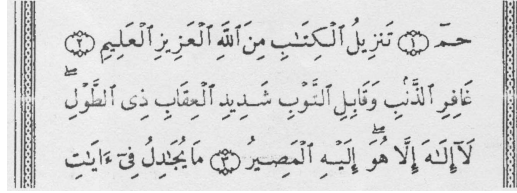 حمٓ ۝١ تَنزِيلُ ٱلْكِتَـٰبِ مِنَ ٱللَّهِ ٱلْعَزِيزِ ٱلْعَلِيمِ ۝٢
غَافِرِ ٱلذَّنۢبِ وَقَابِلِ ٱلتَّوْبِ شَدِيدِ ٱلْعِقَابِ ذِى ٱلطَّوْلِ ۖ
لَآ إِلَـٰهَ إِلَّا هُوَ ۖ إِلَيْهِ ٱلْمَصِيرُ ۝٣ مَا يُجَـٰدِلُ فِىٓ ءَايَـٰتِ